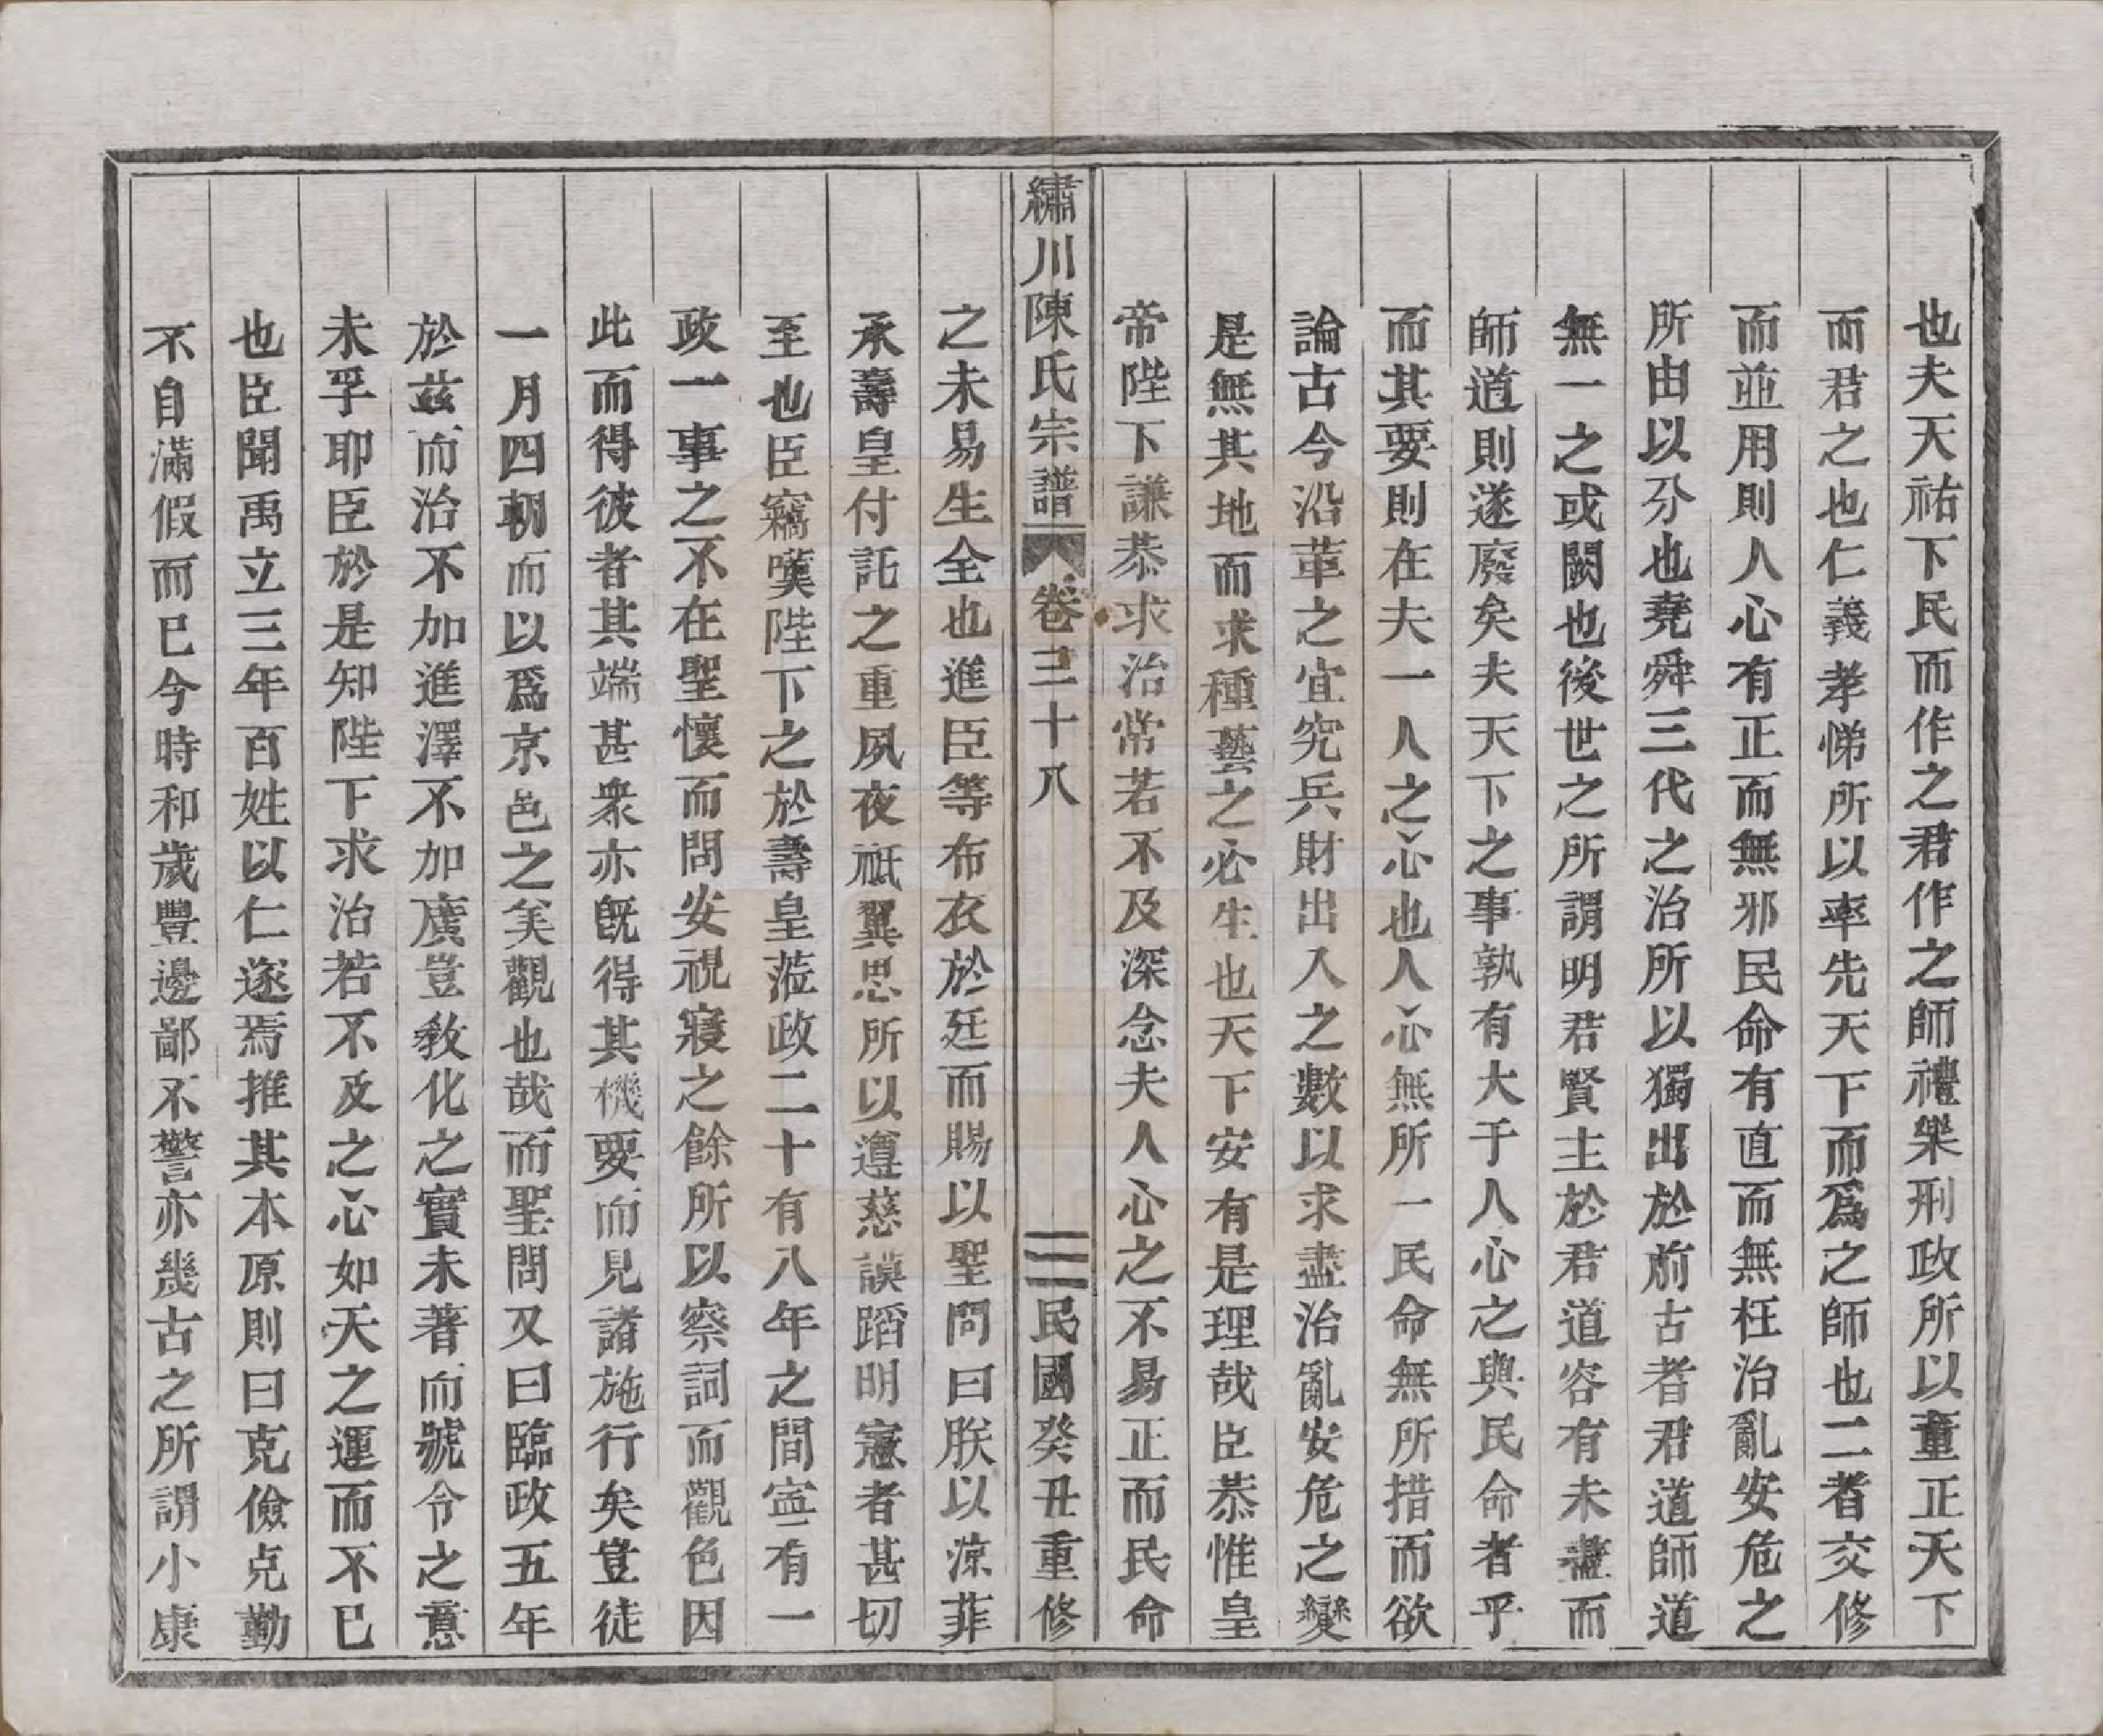 也夫天祐下民而作之君作之師禮樂刑政所以董正天下
而君之也仁義孝悌所以率先天下而爲之師也二者交修
而並用則人心有正而無邪民命有直而無枉治亂安危之
所由以分也堯舜三代之治所以獨出於前古者君道師道
無一之或闕也後世之所謂明君賢主於君道容有未盡而
師道則遂廢矣夫天下之事孰有大于人心之與民命者乎
而其要則在夫一人之心也人心無所一民命無所措而欲
論古今沿革之宜究兵財出入之數以求盡治亂安危之變
是無其地而求種藝之必生也天下安有是理哉臣恭惟皇
帝陛下謙恭求治常若不及深念夫人心之不易正而民命
繡川陳氏宗譜 卷三十八 三 民國癸丑重修
之未易生全也進臣等布衣於廷而賜以聖問曰朕以涼菲
承壽皇付託之重夙夜祗翼思所以遵慈謨蹈明憲者甚切
至也臣竊嘆陛下之於壽皇蒞政二十有八年之間寧有一
政一事之不在聖懷而問安視寢之餘所以察詞而觀色因
此而得彼者其端甚衆亦旣得其機要而見諸施行矣豈徒
一月四朝而以爲京邑之美觀也哉而聖問又曰臨政五年
於茲而治不加進澤不加廣豈敎化之實未著而號令之意
未孚耶臣於是知陛下求治若不及之心如天之運而不已
也臣聞禹立三年百姓以仁遂焉推其本原則曰克儉克勤
不自滿假而已今時和歲豐邊鄙不警亦幾古之所謂小康